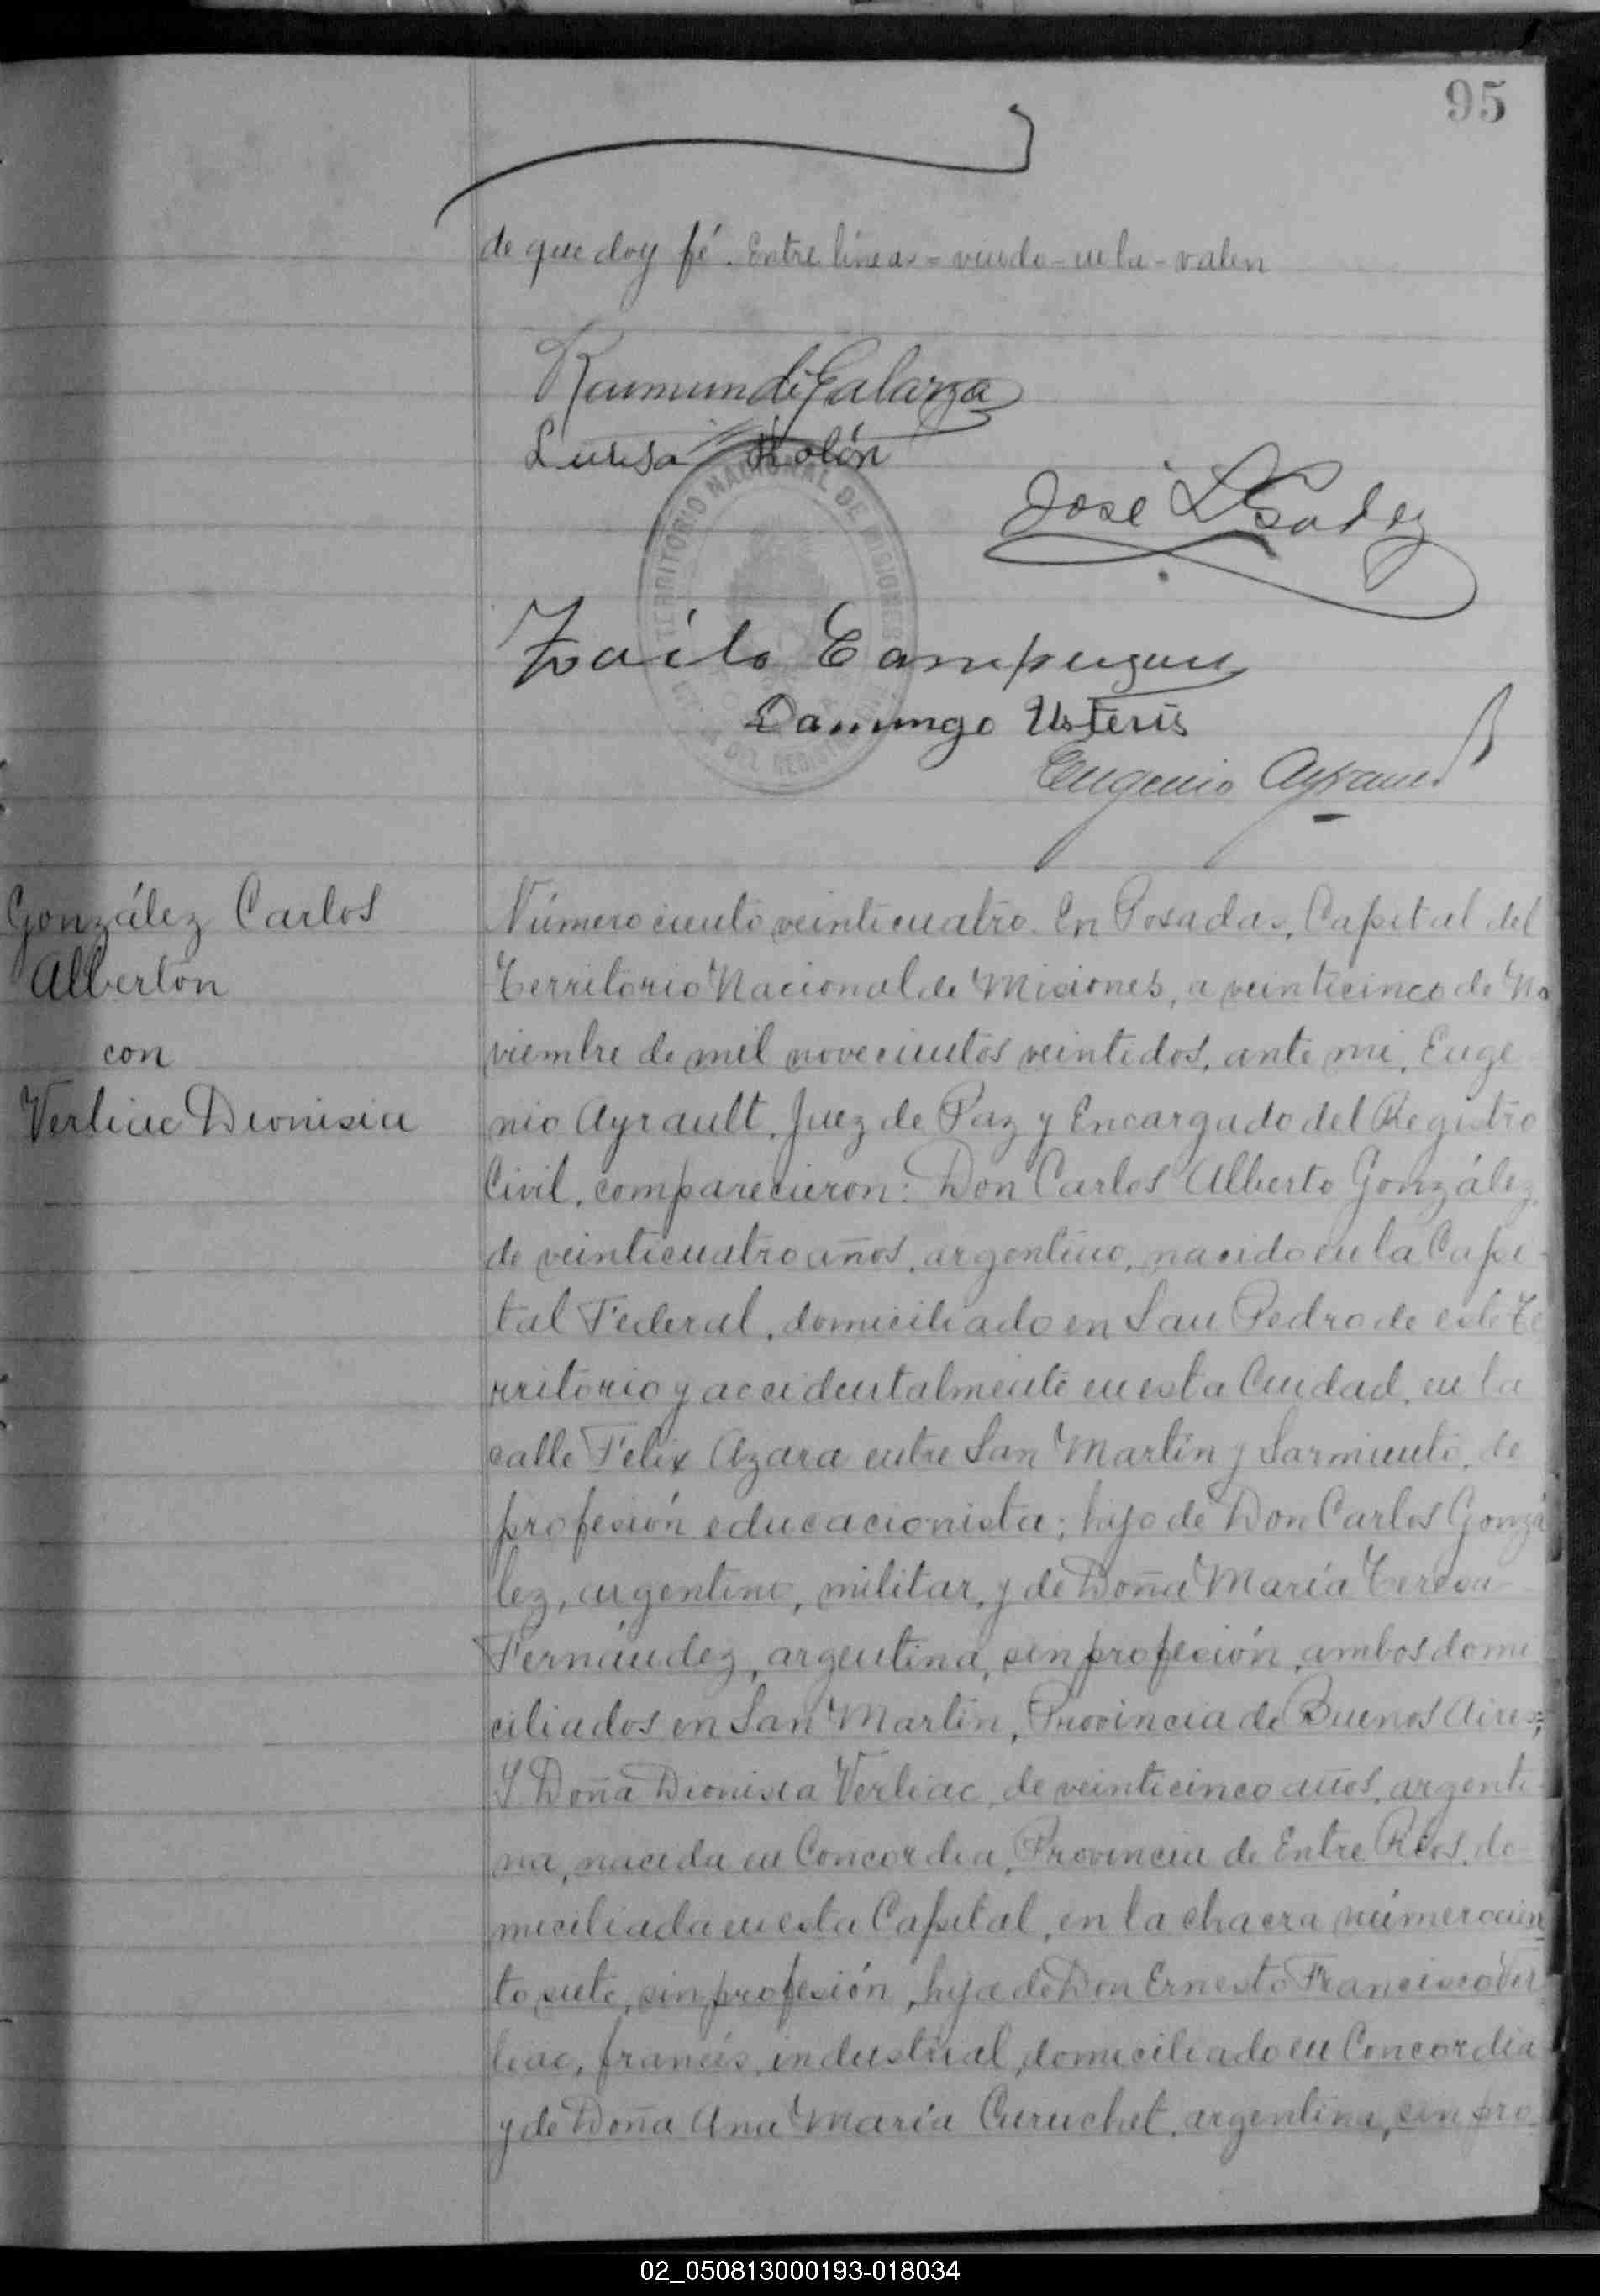 95
de que doy fé. Entre lineas = viudo - en la - valen
Luisa Rolón
José
TERRITORIO NACIONAL DE MISIONES
DEL REGISTRO
Domingo Usteris
Eugenio Ayrault
González Carlos
Alberton
con
Verliac Dionisia
Número ciento veinticuatro. En Posadas, Capital del
Territorio Nacional de Misiones, a veinticinco de No
viembre de mil novecientos veintidos, ante mi, Euge
nio Ayrault, Juez de Paz y Encargado del Registro
Civil, comparecieron: Don Carlos Alberto González,
de veinticuatro años, argentino, nacido en la Capi-
tal Federal, domiciliado en San Pedro de este Te
rritorio y accidentalmente en esta Ciudad, en la
calle Felix Azara entre San Martin y Sarmiento, de
profesión educacionista; hijo de Don Carlos Gonzá
lez, argentino, militar, y de Doña María Teresa
Fernández, argentina, sin profesión, ambos domi
ciliados en San Martin, Provincia de Buenos Aires;
Y Doña Dionisia Verliac, de veinticinco años, argenti-
na, nacida en Concordia, Provincia de Entre Rios, do
miciliada en esta Capital, en la chacra número cien
to siete, sin profesión, hija de Don Ernesto Francisco Ver
liac, francés, industrial, domiciliado en Concordia
y de Doña Ana María Curuchet, argentina, sin pro
02_050813000193-018034